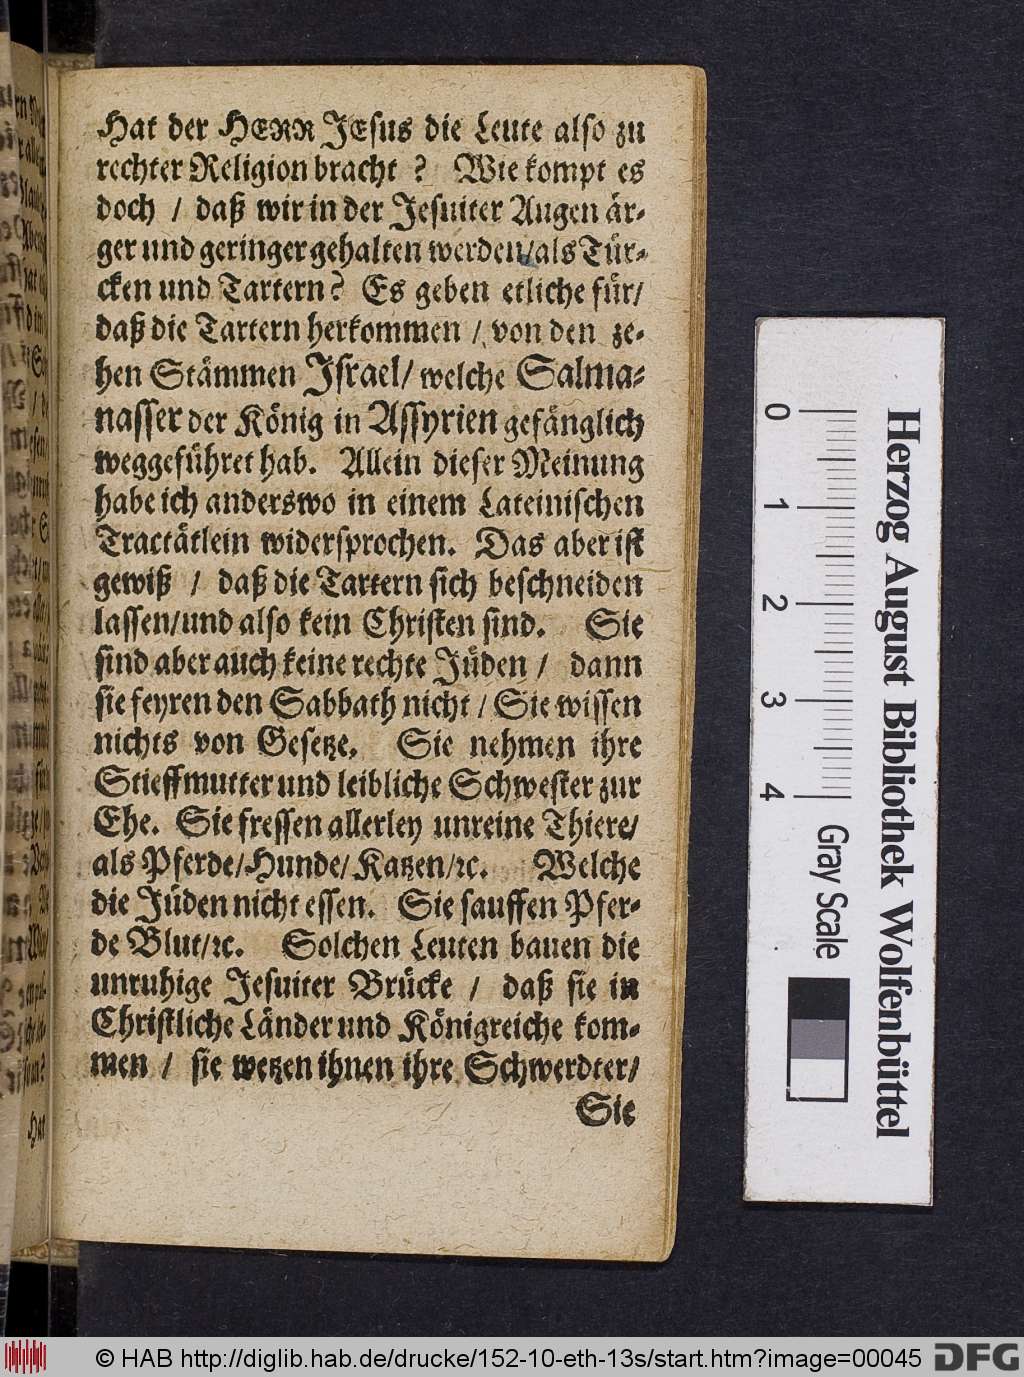 Hat der HERR JEsus die Leute also zu
rechter Religion bracht ? Wie kompt es
doch / daß wir in der Jesuiter Augen är-
ger und geringer gehalten werden/als Tür-
cken und Tartern? Es geben etliche für/
daß die Tartern herkommen / von den ze-
hen Stämmen Israel/ welche Salma-
nasser der König in Assyrien gefänglich
weggeführet hab. Allein dieser Meinung
habe ich anderswo in einem Lateinischen
Tractätlein widersprochen. Das aber ist
gewiß / daß die Tartern sich beschneiden
lassen/und also kein Christen sind. Sie
sind aber auch keine rechte Jüden / dann
sie feyren den Sabbath nicht / Sie wissen
nichts von Gesetze. Sie nehmen ihre
Stieffmutter und leibliche Schwester zur
Ehe. Sie fressen allerley unreine Thiere/
als Pferde/Hunde/Katzen/ꝛc. Welche
die Jüden nicht essen. Sie sauffen Pfer-
de Blut/ꝛc. Solchen Leuten bauen die
unruhige Jesuiter Brücke / daß sie in
Christliche Länder und Königreiche kom-
men / sie wetzen ihnen ihre Schwerdter/
Sie
Hat
0 1 2 3 4
Gray Scale
Herzog August Bibliothek Wolfenbüttel
© HAB http://diglib.hab.de/drucke/152-10-eth-13s/start.htm?image=00045
DFG